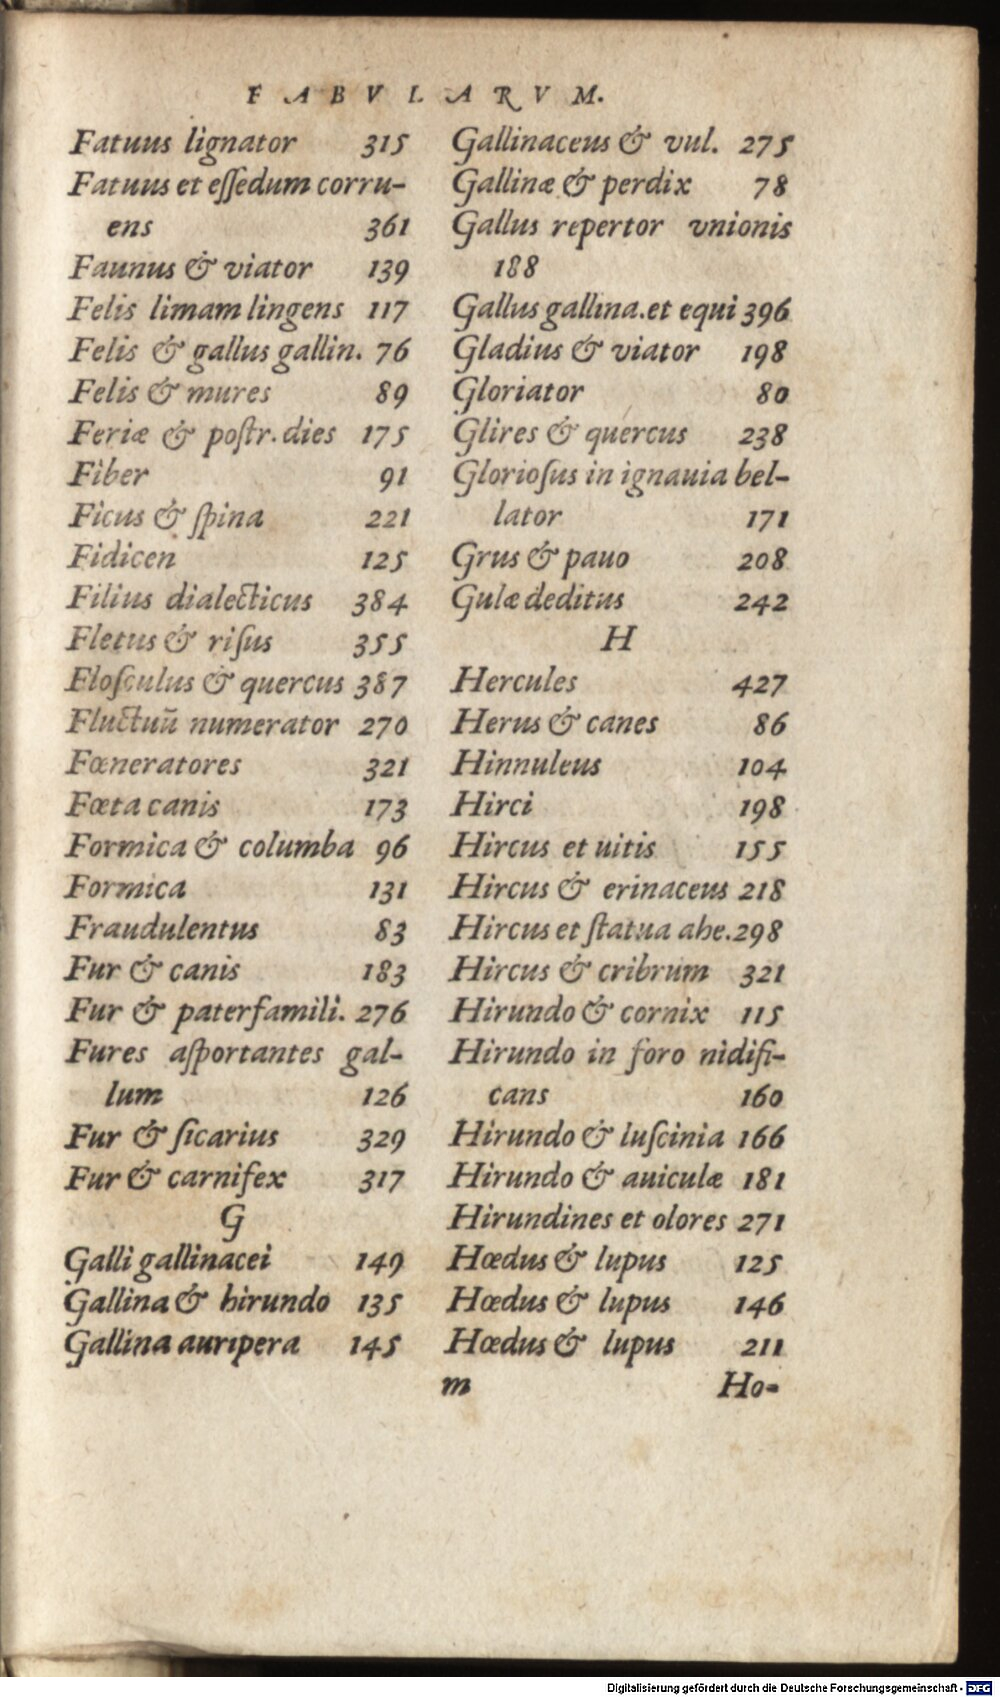 FABVLARVM.
Fatuus lignator 315
Fatuus et eſſedum corru-
ens 361
Faunus & viator 139
Felis limam lingens 117
Felis & gallus gallin. 76
Felis & mures 89
Feriæ & poſtr. dies 175
Fiber 91
Ficus & ſpina 221
Fidicen 125
Filius dialecticus 384
Fletus & riſus 355
Floſculus & quercus 387
Fluctuū numerator 270
Fœneratores 321
Fœta canis 173
Formica & columba 96
Formica 131
Fraudulentus 83
Fur & canis 183
Fur & paterfamili. 276
Fures aſportantes gal-
lum 126
Fur & ſicarius 329
Fur & carnifex 317
G
Galli gallinacei 149
Gallina & hirundo 135
Gallina auripera 145
Gallinaceus & vul. 275
Gallinæ & perdix 78
Gallus repertor vnionis
188
Gallus gallina. et equi 396
Gladius & viator 198
Gloriator 80
Glires & quercus 238
Glorioſus in ignauia bel-
lator 171
Grus & pauo 208
Gulæ deditus 242
H
Hercules 427
Herus & canes 86
Hinnuleus 104
Hirci 198
Hircus et uitis 155
Hircus & erinaceus 218
Hircus et ſtatua ahe. 298
Hircus & cribrum 321
Hirundo & cornix 115
Hirundo in foro nidifi-
cans 160
Hirundo & luſcinia 166
Hirundo & auiculæ 181
Hirundines et olores 271
Hœdus & lupus 125
Hœdus & lupus 146
Hœdus & lupus 211
m Ho-
Digitalisierung gefördert durch die Deutsche Forschungsgemeinschaft - DFG